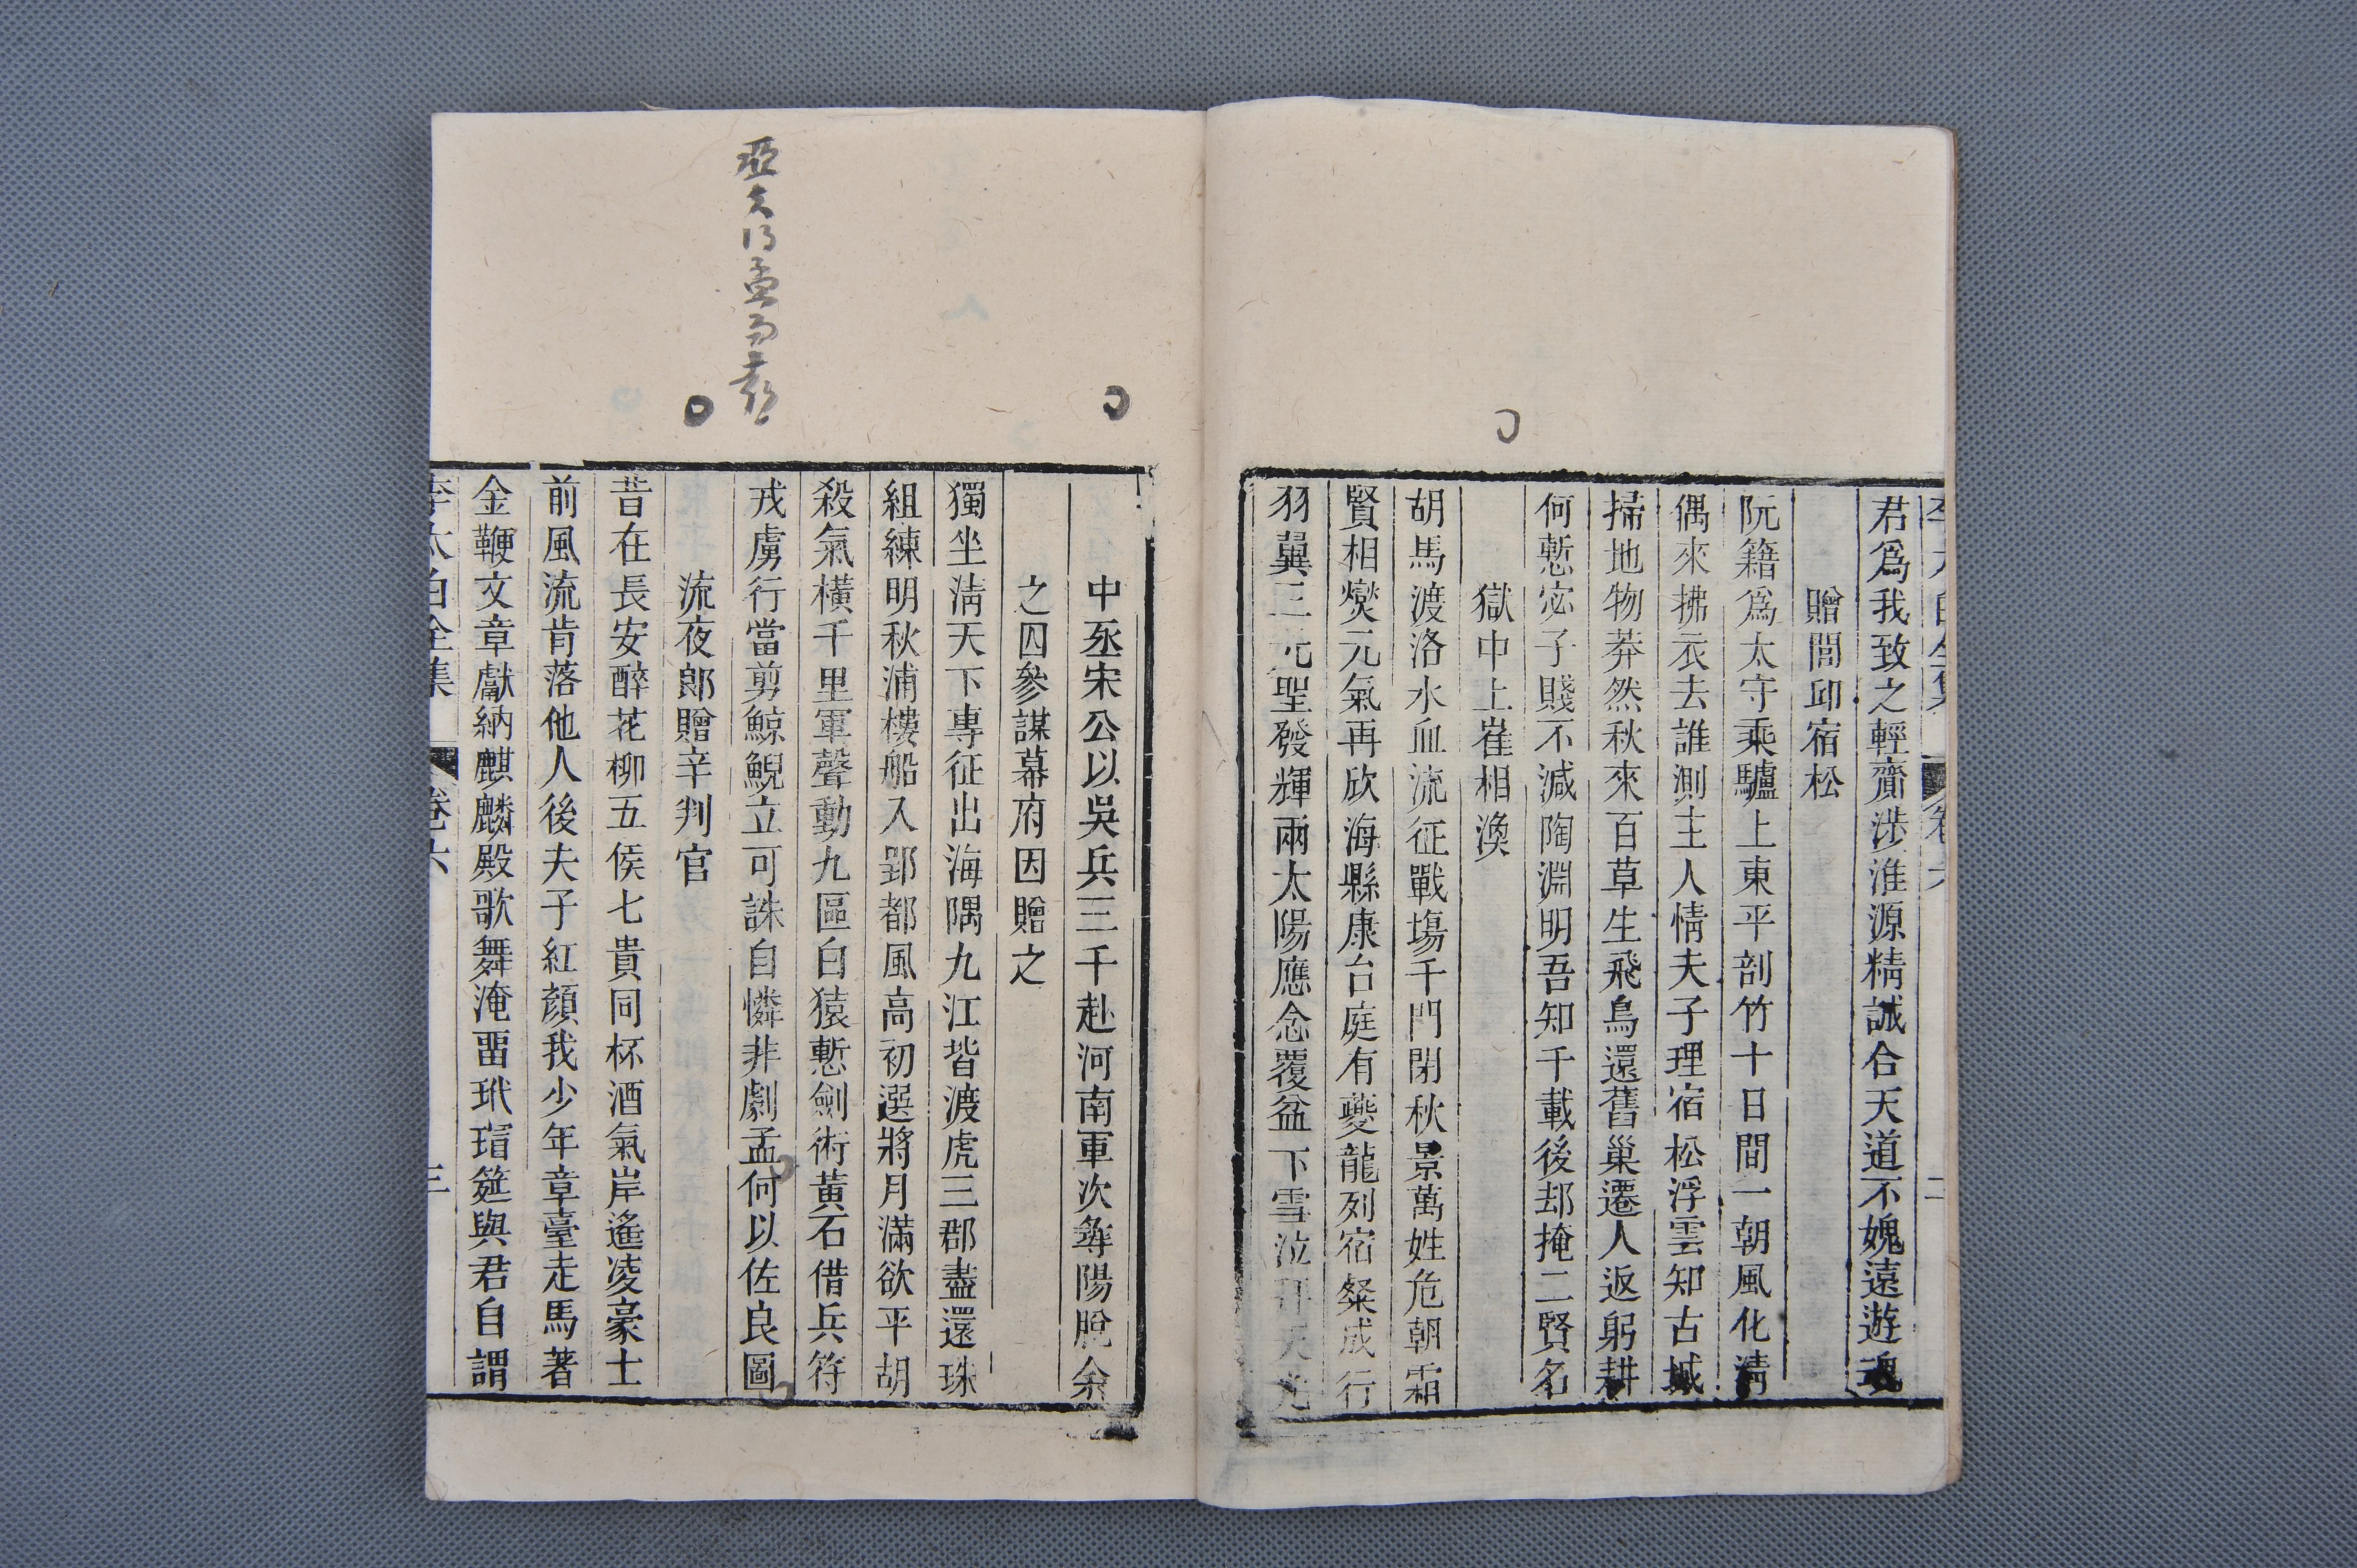 君爲我致之輕齎涉淮源精誠合天道不媿遠遊魂
贈閭邱宿松
阮籍爲太守乘驢上東平剖竹十日間一朝風化淸
偶來拂衣去誰測主人情夫子理宿松浮雲知古城
掃地物莽然秋來百草生飛鳥還舊巢遷人返躬耕
何慙宓子賤不減陶淵明吾知千載後却掩二賢名
獄中上崔相渙
胡馬渡洛水血流征戰塲千門閉秋景萬姓危朝霜
賢相燮元氣再欣海縣康台庭有夔龍列宿粲成行
羽翼三元聖發輝兩太陽應念覆盆下雪泣拜天光
中丞宋公以吳兵三千赴河南軍次尋陽脫余
之囚參謀幕府因贈之
獨坐淸天下專征出海隅九江皆渡虎三郡盡還珠
組練明秋浦樓船入郢都風高初選將月滿欲平胡
殺氣橫千里軍聲動九區白猿慙劍術黃石借兵符
戎虜行當剪鯨鯢立可誅自憐非劇孟何以佐良圖
流夜郎贈辛判官
昔在長安醉花柳五侯七貴同杯酒氣岸遙凌豪士
前風流肯落他人後夫子紅顏我少年章臺走馬著
金鞭文章獻納麒麟殿歌舞淹畱玳瑁筵與君自謂
李太白全集 卷六 三